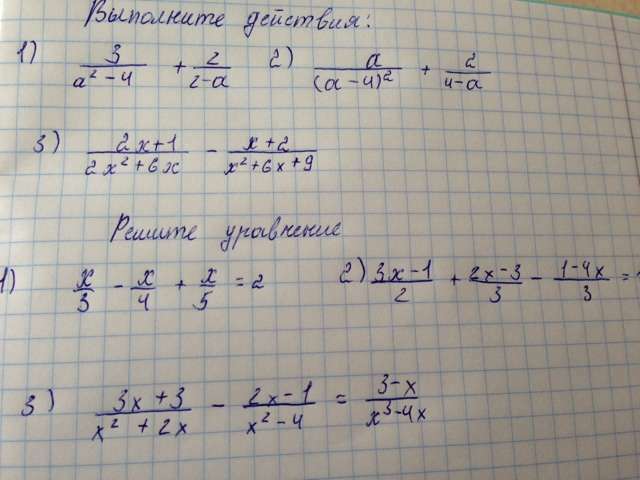 Выполните действия:
1) 3/(a² - 4) + 2/(2-a) 2) a/(a-4)² + 2/(4-a)
3) (2x+1)/(2x²+6x) - (x+2)/(x²+6x+9)
Решите уравнение
1) x/3 - x/4 + x/5 = 2 2) (3x-1)/2 + (2x-3)/3 - (1-4x)/3 =
3) (3x+3)/(x²+2x) - (2x-1)/(x²-4) = (3-x)/(x³-4x)